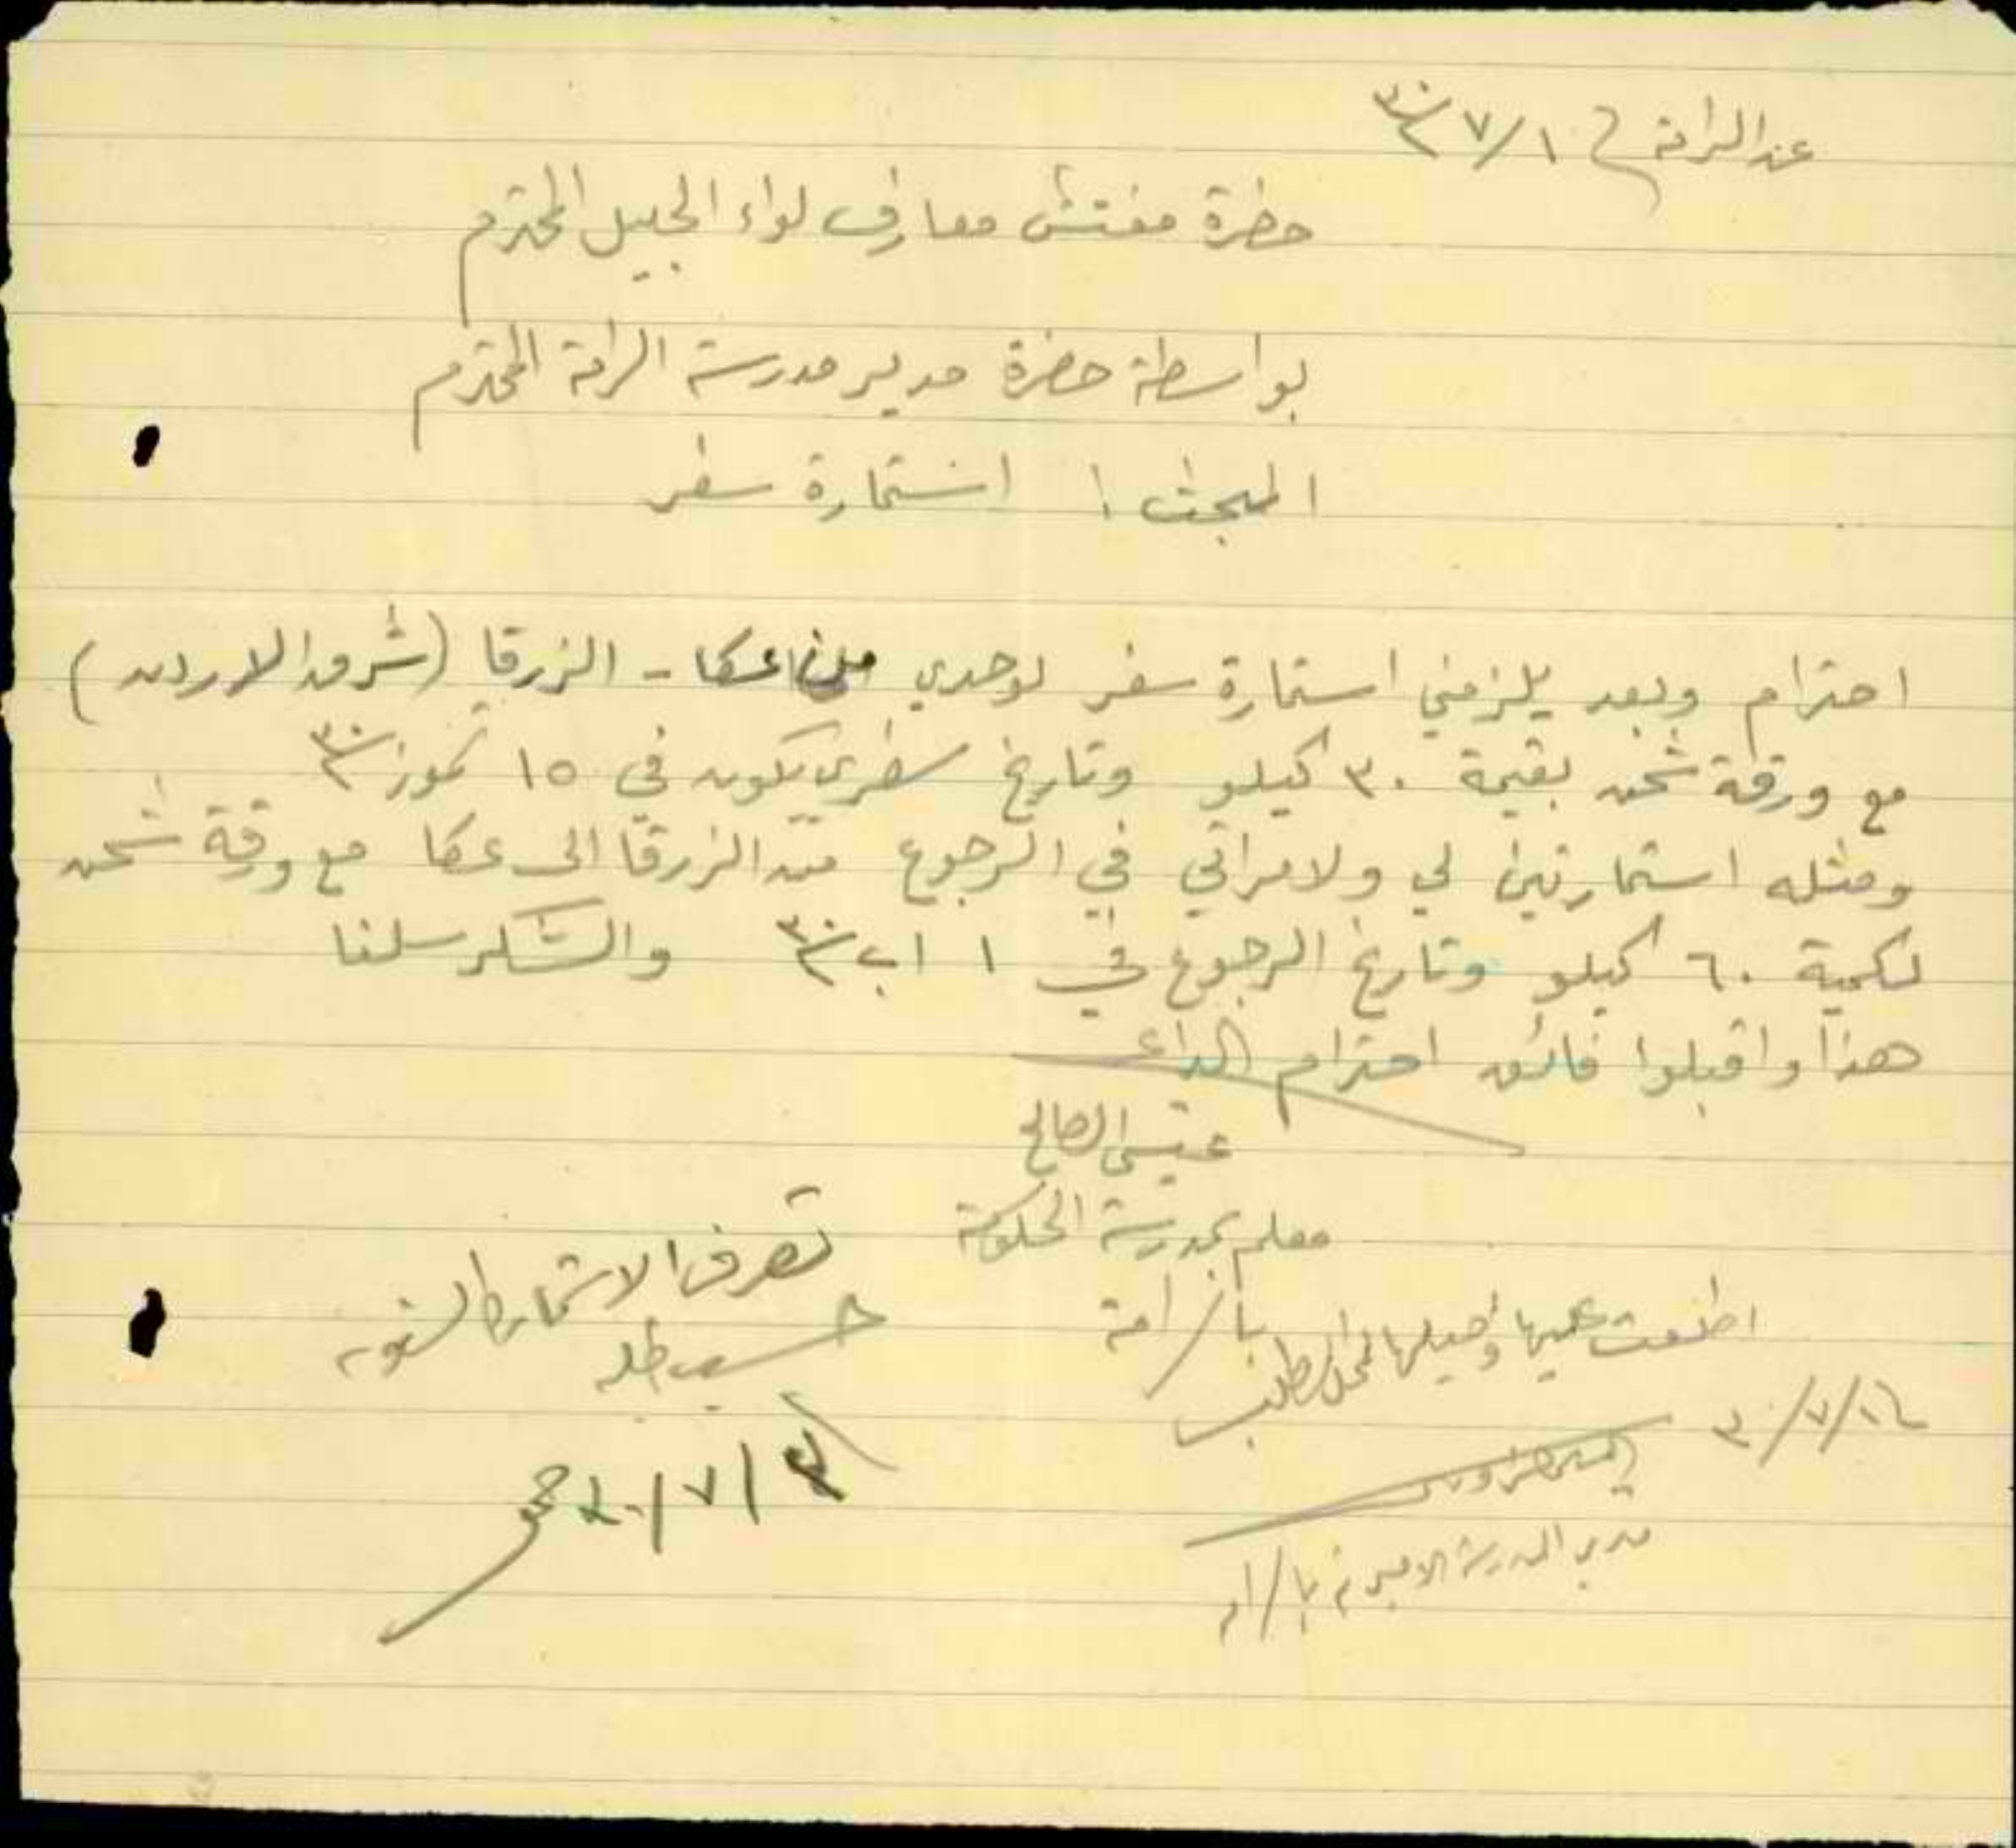 عن الرامة في ١/٧/٣٠
حضرة مفتش معارف لواء الجليل المحترم
بواسطة حضرة مدير مدرسة الرامة المحترم
المبحث : استمارة سفر
احترام وبعد يلزمني استمارة سفر لوحدي من عكا - الزرقا (شرق الاردن)
مع ورقة شحن بقيمة ٣٠ كيلو وتاريخ سفري يكون في ١٥ تموز ٣٠
ومثله استمارتين لي ولامراتي في الرجوع من الزرقا الى عكا مع ورقة شحن
لكمية ٦٠ كيلو وتاريخ الرجوع في ١ اب ٣٠ والشكر سلفا
هذا واقبلوا فائق احترام الداعي
عيسى الصالح
معلم بمدرسة الحكومة
بالرامة
اطلعت عليها واحيلها لمحل الطلب
٣٠/٧/٢
مدير المدرسة الاميرية بالرامة
تصرف الاستمارة
حسب طلبه
٣٠/٧/٤